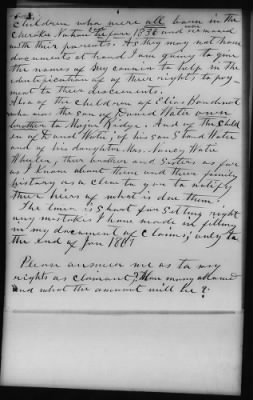 children who were all born in the
Cherokee Nation before 1836 and removed
with their parents. As they may not have
documents at hand I am going to give
the names of my cousins to help in the
identification of their rights to pay-
ment to their descenents.
Also of the children of Elias Boudinot
who was the son of David Watie
brother to Major Ridge. And of the Child
ren of David Watie; of his son Stand Watie
and of his daughter Mrs. Nancy Watie
Wheeler, their brother and Sisters as far
as I know about them and their family
history as a clew to you to notify
their heirs of what is due them.
The time is short for getting right
any mistakes I have made in filling
in my document of claims; only to
the end of Jan 1907
Please answer me as to my
rights as claimant? How many
and what the amount will be?